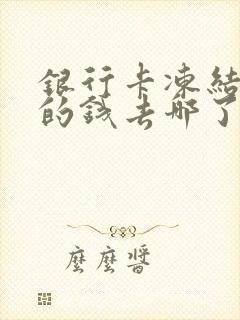 銀行卡凍結
的錢去哪了
麼麼醬